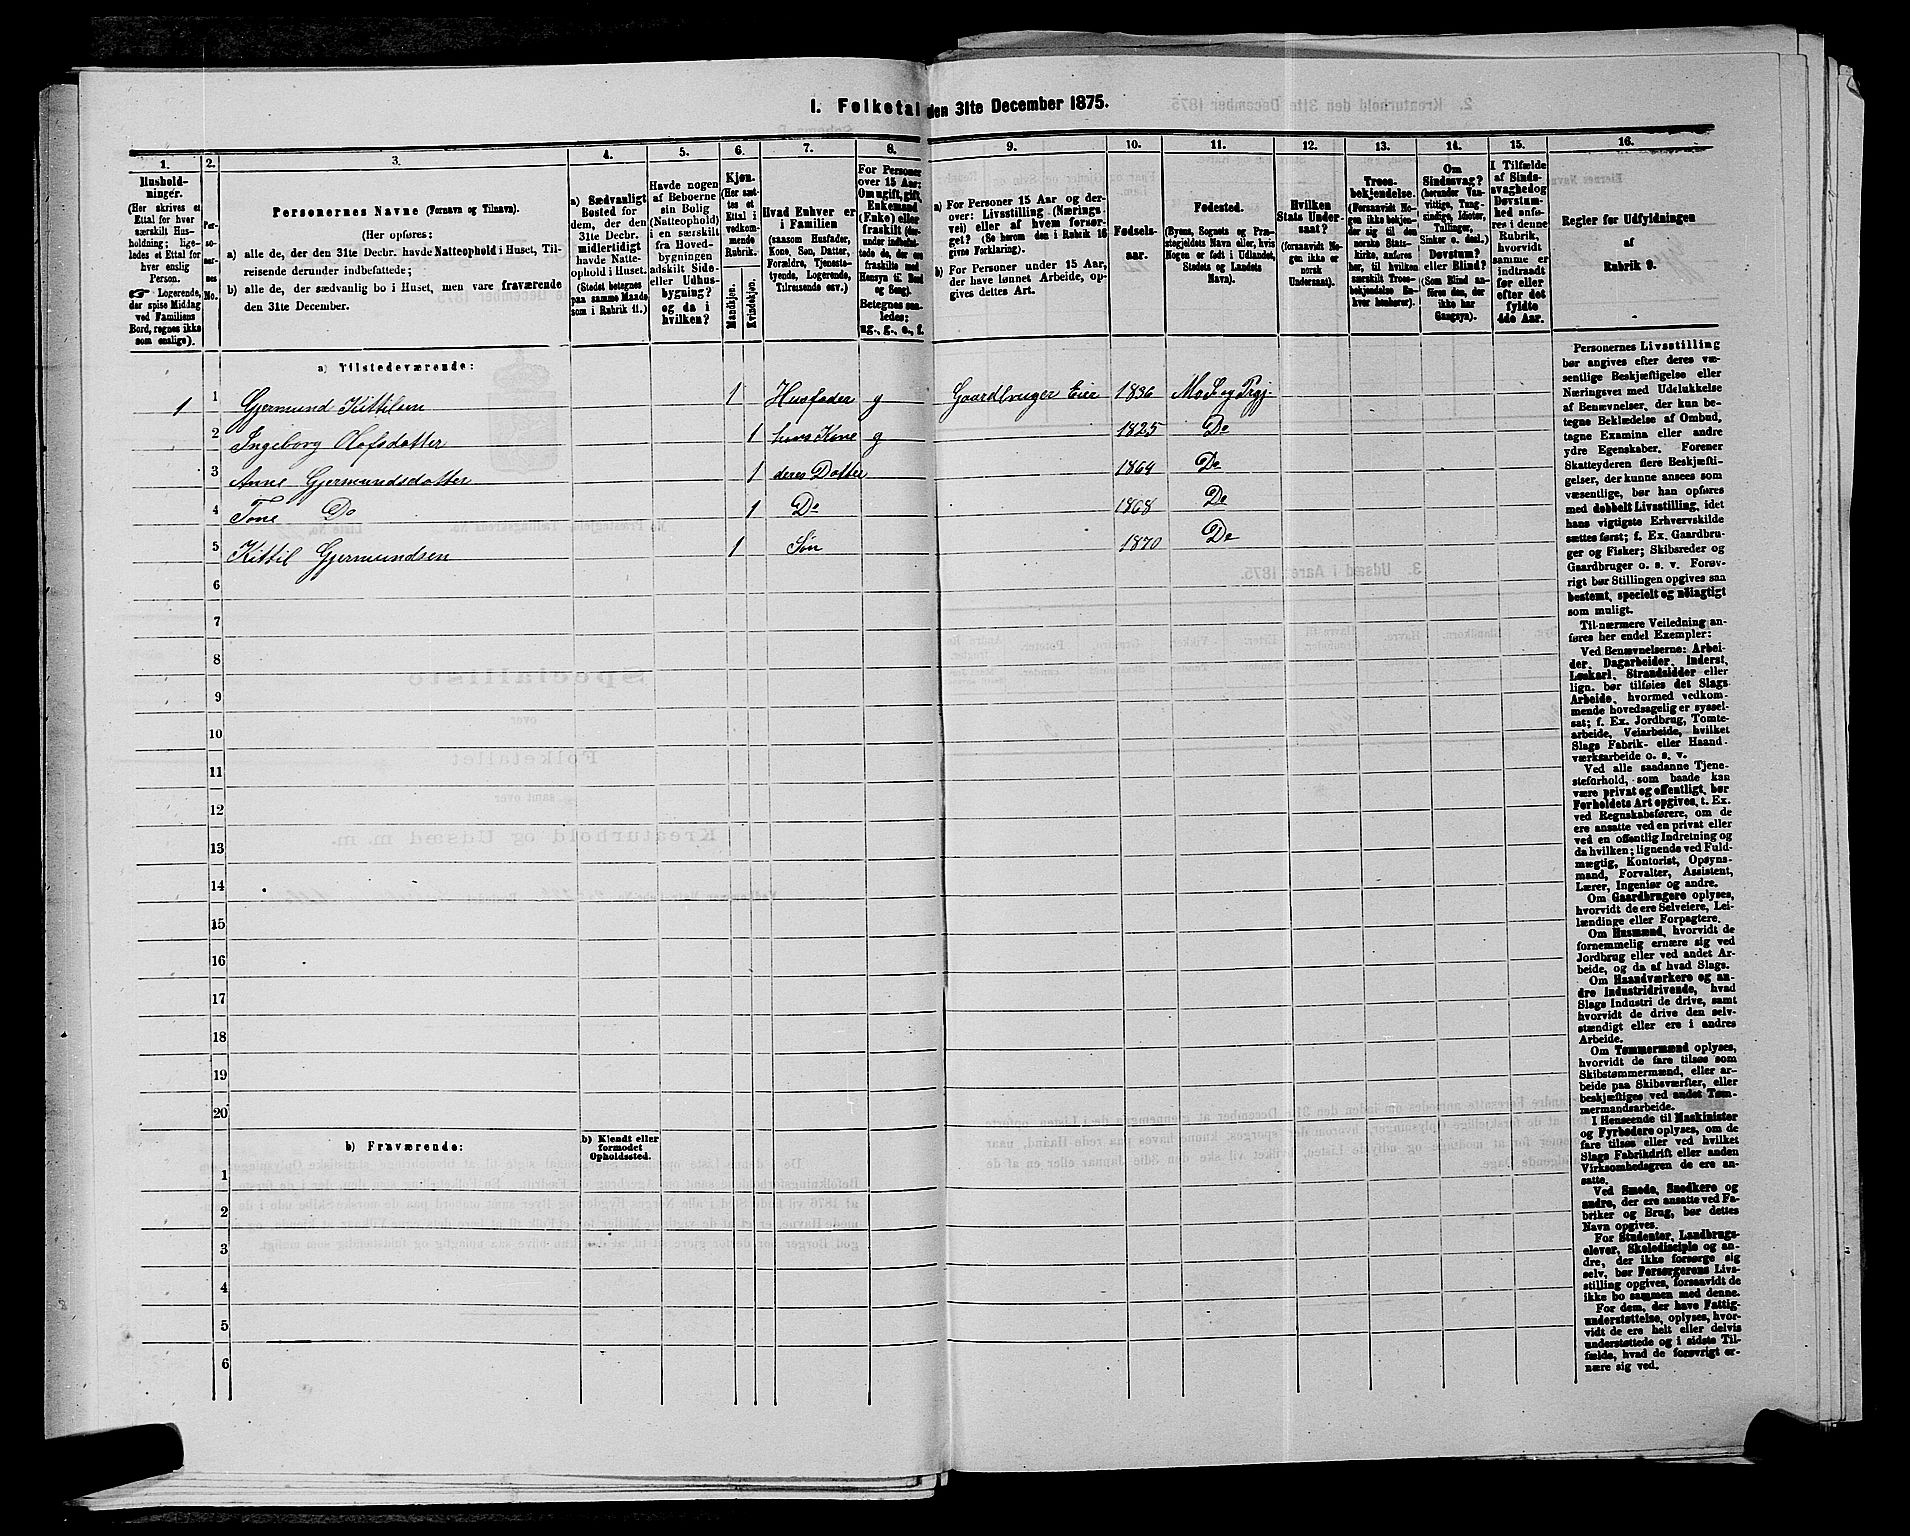 1. Folketal den 31te December 1875.
1.
2.
3.
4.
5.
6.
7.
8.
9.
10.
11.
12.
13.
14.
15.
16.
Hushold-
ninger.
(Her skrives et
Ettal for hver
særskilt Hus-
holdning; lige-
ledes et Ettal for
hver enslig
Person.
☞ Logerende,
der spise Middag
ved Familiens
Bord, regnes ikke
som enslige).
Per-
so-
ner-
nes
No.
Personernes Navne (Fornavn og Tilnavn).
(Her opføres:
a) alle de, der den 31te Decbr. havde Natteophold i Huset, Til-
reisende derunder indbefattede;
b) alle de, der sædvanlig bo i Huset, men vare fraværende
den 31te December.
a) Sædvanligt
Bosted for
dem, der den
31te Decbr.
midlertidigt
havde Natte-
ophold i Huset.
(Stedet betegnes
paa samme Maade
som i Rubrik 11.)
Havde nogen
af Beboerne
sin Bolig
(Natteophold)
i en særskilt
fra Hoved-
bygningen
adskilt Side-
eller Udhus-
bygning?
og da i
hvilken?
Kjøn.
(Her sæt-
tes et
Ettal i
vedkom-
mende
Rubrik.
Mandkjøn.
Kvindekjøn.
Hvad Enhver er
i Familien
(saasom Husfader,
Kone, Søn, Datter,
Forældre, Tjeneste-
tyende, Logerende,
Tilreisende osv.)
For Personer
over 15 Aar:
Om ugift, gift,
Enkemand
(Enke) eller
fraskilt (der-
under indbefat-
tede de, der ere
fraskilte med
Hensyn til Bord
og Seng).
Betegnes saa-
ledes:
ug., g., e., f.
a) For Personer 15 Aar og der-
over: Livsstilling (Nærings-
vei) eller af hvem forsør-
get? (Se herom den i Rubrik 16
givne Forklaring).
b) For Personer under 15 Aar,
der have lønnet Arbeide, op-
gives dettes Art.
Fødsels-
aar.
Fødested.
(Byens, Sognets og Præ-
stegjeldets Navn eller, hvis
Nogen er født i Udlandet,
Stedets og Landets
Navn).
Hvilken
Stats Under-
saat?
(forsaavidt No-
gen ikke er
norsk
Undersaat).
Troes-
bekjendelse.
(Forsaavidt No-
gen ikke bekjen-
der sig til den
norske Stats-
kirke, anføres
her, til hvilken
Troes-
bekjendelse En-
hver henhører).
Om
Sindssvag?
(herunder Van-
vittige, Tung-
sindige, Idioter,
Tullinger,
Sinker o. desl.)
Døvstum?
eller Blind?
(Som Blind an-
føres den, der
ikke har
Gangsyn).
I Tilfælde
af Sinds-
svaghed og
Døvstum-
hed anfø-
res i denne
Rubrik,
hvorvidt
samme er
indtraadt
før eller
efter det
fyldte
4de Aar.
Regler for Udfyldningen
af
Rubrik 9.
a) Tilstedeværende:
1 1 Gjermund Kittilsen 1 Husfader g Gaardbruger Eier 1836 Mo S. og Prgj.
2 Ingeborg Olofsdatter 1 hans Kone g 1825 Do
3 Anne Gjermundsdatter 1 deres Datter 1864 Do
4 Tone Do 1 Do 1868 Do
5 Kittil Gjermundsen 1 Søn 1870 Do
6
7
8
9
10
11
12
13
14
15
16
17
18
19
20
b) Fraværende:
b) Kjendt eller
formodet
Opholdssted.
1
2
3
4
5
6
Personernes Livsstilling
bør angives efter deres væ-
sentlige Beskjæftigelse eller
Næringsvei med Udelukkelse
af Benævnelser, der kun be-
tegne Beklædelse af Ombud,
tagne Examina eller andre
ydre Egenskaber. Forener
Skatteyderen flere Beskjæfti-
gelser, der kunne ansees som
væsentlige, bør han opføres
med dobbelt Livsstilling, idet
hans vigtigste Erhvervskilde
sættes først; f. Ex. Gaardbru-
ger og Fisker; Skibsreder og
Gaardbruger o. s. v. Forøv-
rigt bør Stillingen opgives saa
bestemt, specielt og nøiagtigt
som muligt.
Til nærmere Veiledning an-
føres her endel Exempler:
Ved Benævnelserne: Arbei-
der, Dagarbeider, Inderst,
Løskarl, Strandsidder eller
lign. bør tilføies det Slags
Arbeide, hvormed vedkom-
mende hovedsagelig er syssel-
sat; f. Ex. Jordbrug, Tomte-
arbeide, Veiarbeide, hvilket
Slags Fabrik- eller Haand-
værksarbeide o. s. v.
Ved alle saadanne Tjene-
steforhold, som baade kan
være privat og offentligt, bør
Forholdets Art opgives, t. Ex.
ved Regnskabsførere, om de
ere ansatte ved en privat eller
ved en offentlig Indretning og
da hvilken; lignende ved Fuld-
mægtig, Kontorist, Opsyns-
mand, Forvalter, Assistent,
Lærer, Ingeniør og andre.
Om Gaardbrugere oplyses,
hvorvidt de ere Selveiere, Lei-
lændinge eller Forpagtere.
Om Husmænd, hvorvidt de
fornemmelig ernære sig ved
Jordbrug eller ved andet Ar-
beide, og da af hvad Slags.
Om Haandværkere og an-
dre Industridrivende, hvad
Slags Industri de drive, samt
hvorvidt de drive den selv-
stændigt eller ere i andres
Arbeide.
Om Tømmermænd oplyses,
hvorvidt de fare tilsøs som
Skibstømmermænd, eller ar-
beide paa Skibsværfter, eller
beskjæftiges ved andet Tøm-
mermandsarbeide.
I Henseende til Maskinister
og Fyrbødere oplyses, om de
fare tilsøs eller ved hvilket
Slags Fabrikdrift eller anden
Virksomhedsgren de ere an-
satte.
Ved Smede, Snedkere og
andre, der ere ansatte ved Fa-
briker og Brug, bør dettes
Navn opgives.
For Studenter, Landbrugs-
elever, Skoledisciple og an-
dre, der ikke forsørge sig
selv, bør Forsørgerens Livs-
stilling opgives, forsaavidt de
ikke bo sammen med denne.
For dem, der have Fattig-
understøttelse, oplyses, hvor-
vidt de ere helt eller delvis
understøttede og i sidste Til-
fælde, hvad de forøvrigt er-
nære sig ved.